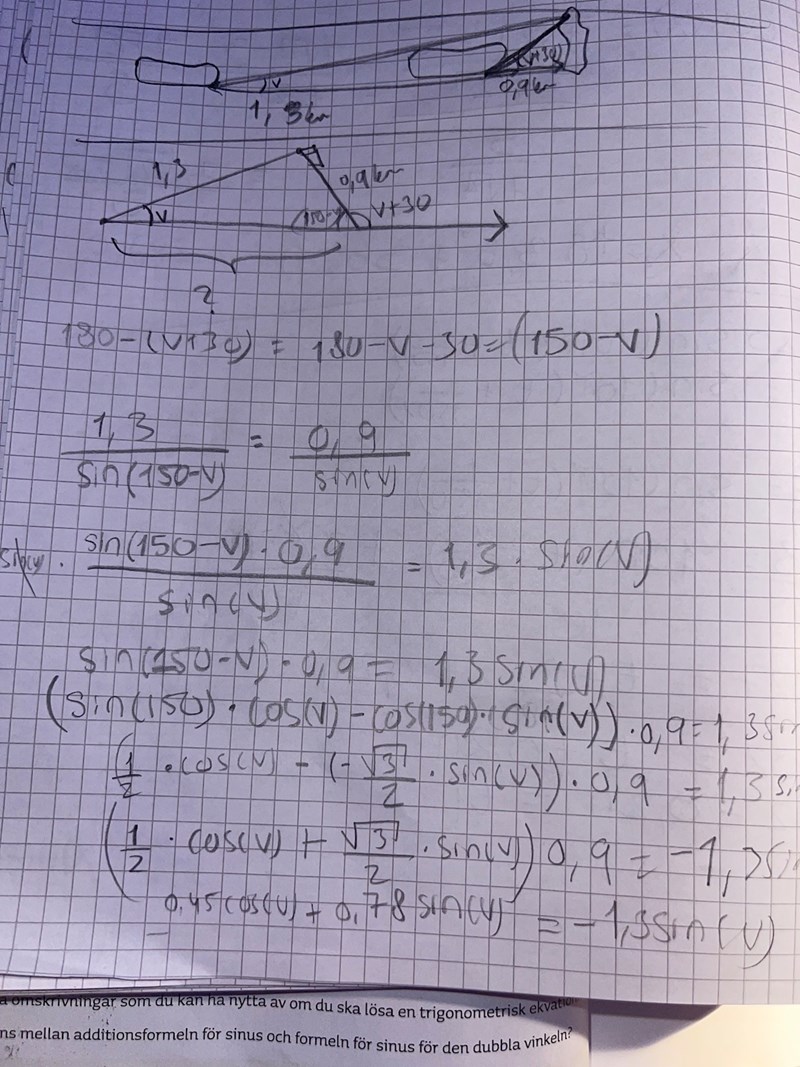 v
(v+30)
1,3km
0,9km
1,3
0,9km
v
150-v
v+30
?
180-(v+30) = 180-v-30=(150-v)
1,3 / sin(150-v) = 0,9 / sin(v)
sin(150-v)·0,9 / sin(v) = 1,3 · sin(v)
sin(150-v)·0,9 = 1,3 sin(v)
(sin(150)·cos(v)-cos(150)·sin(v))·0,9=1,3sin
(1/2 ·cos(v) - (-√3/2 ·sin(v))·0,9 = 1,3 s
(1/2 · cos(v) + √3/2 · sin(v)) 0,9 = -1,3sin
0,45cos(v) + 0,78 sin(v) = -1,3sin(v)
a omskrivningar som du kan ha nytta av om du ska lösa en trigonometrisk ekvation
ns mellan additionsformeln för sinus och formeln för sinus för den dubbla vinkeln?